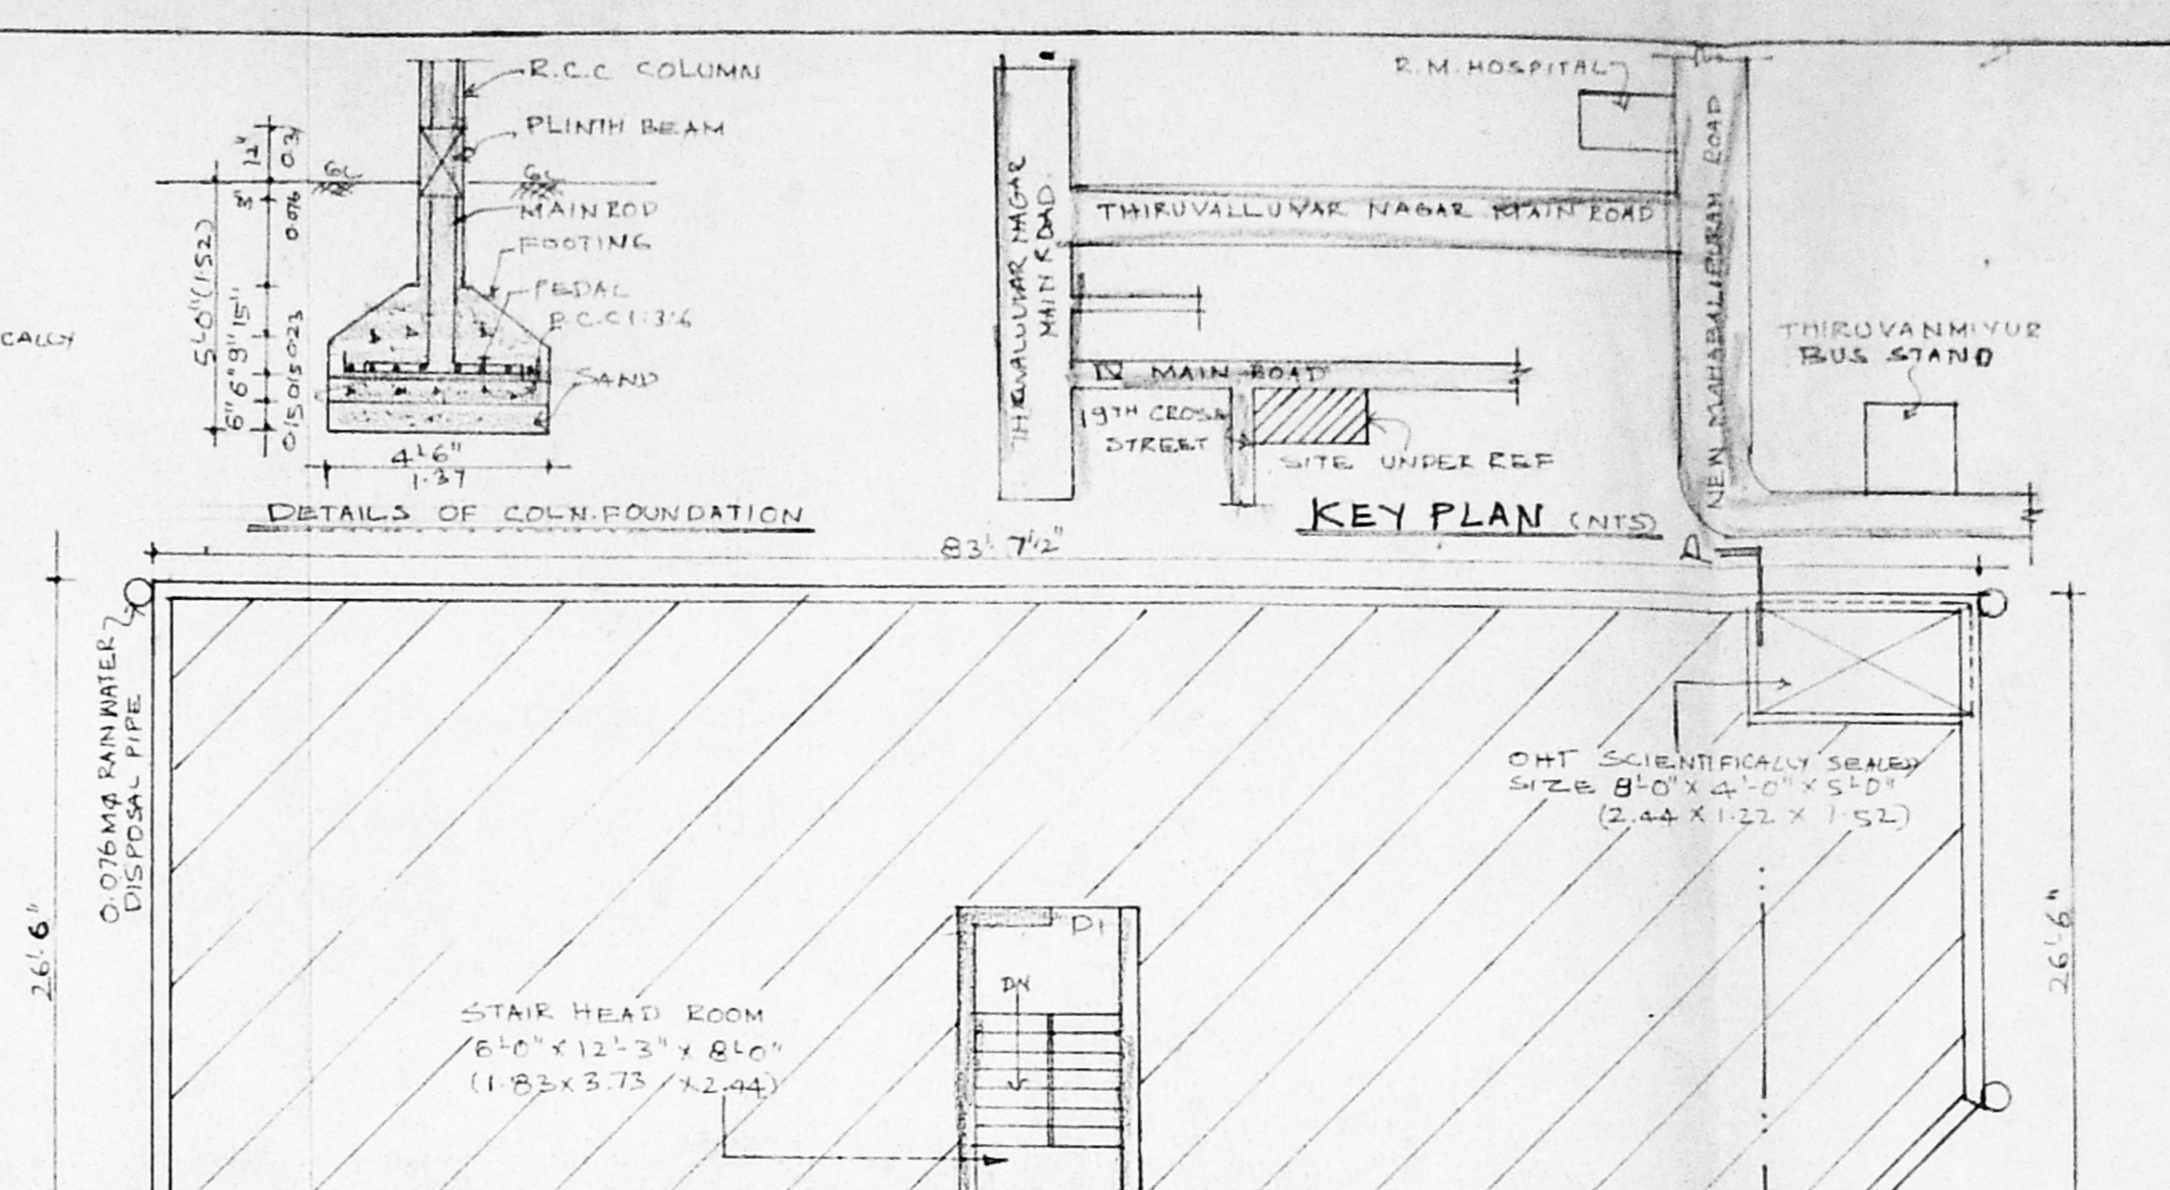 R.C.C COLUMN
PLINTH BEAM
12"
0.3
GL
GL
3"
0.076
MAIN ROD
FOOTING
PEDAL
P.C.C 1:3:6
SAND
5'-0" (1.52)
6" 6" 9" 15"
0.15 0.15 0.23
4'6"
1.37
DETAILS OF COLN. FOUNDATION
CALLY
R.M. HOSPITAL
THIRUVALLUVAR NAGAR MAIN ROAD
THIRUVALUVAR NAGAR
MAIN ROAD.
NEW MAHABALIPURAM ROAD
THIRUVANMIYUR
BUS STAND
IV MAIN ROAD
19TH CROSS
STREET
SITE UNDER REF
KEY PLAN (NTS)
83'-7½"
A
0.076 MΦ RAIN WATER
DISPOSAL PIPE
26'-6"
26'-6"
OHT SCIENTIFICALLY SEALED
SIZE 8'-0" X 4'-0" X 5'-0"
(2.44 X 1.22 X 1.52)
D1
DN
STAIR HEAD ROOM
6'-0" X 12'-3" X 8'-0"
(1.83 X 3.73 X 2.44)